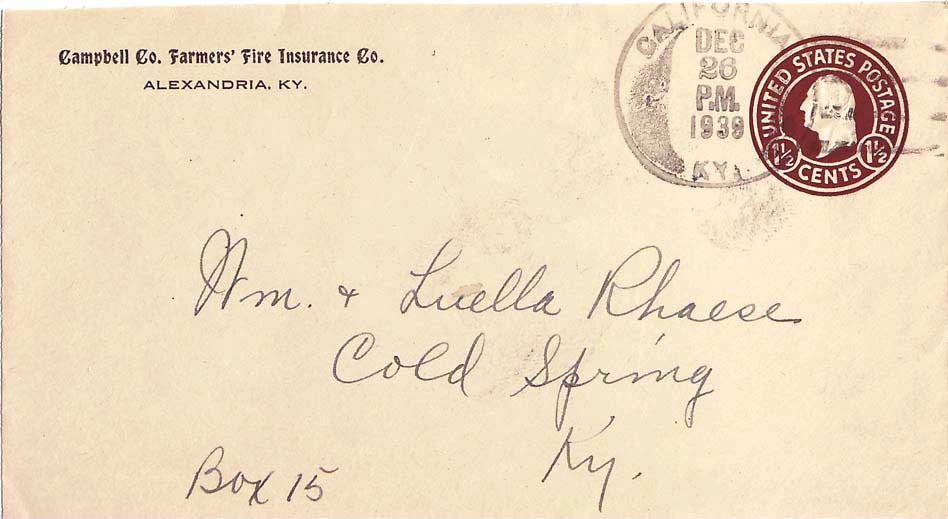 Campbell Co. Farmers' Fire Insurance Co.
ALEXANDRIA, KY.
CALIFORNIA
DEC
26
P.M.
1939
KY.
UNITED STATES POSTAGE
1½ CENTS 1½
Wm. & Luella Rhaese
Cold Spring
Ky.
Box 15